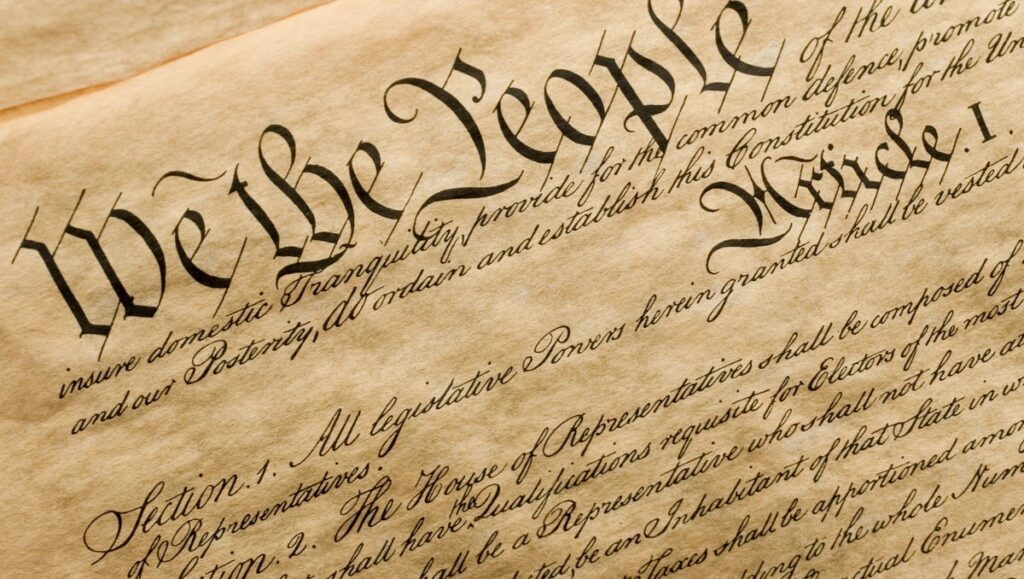 We the People of the Un
insure domestic Tranquility, provide for the common defence, promote
and our Posterity, do ordain and establish this Constitution for the Un
Article. I.
Section. 1. All legislative Powers herein granted shall be vested
of Representatives.
ction. 2. The House of Representatives shall be composed of
shall have the Qualifications requisite for Electors of the most
hall be a Representative who shall not have at
ted, be an Inhabitant of that State in w
Taxes shall be apportioned amon
ding to the whole Num
ctual Enumer